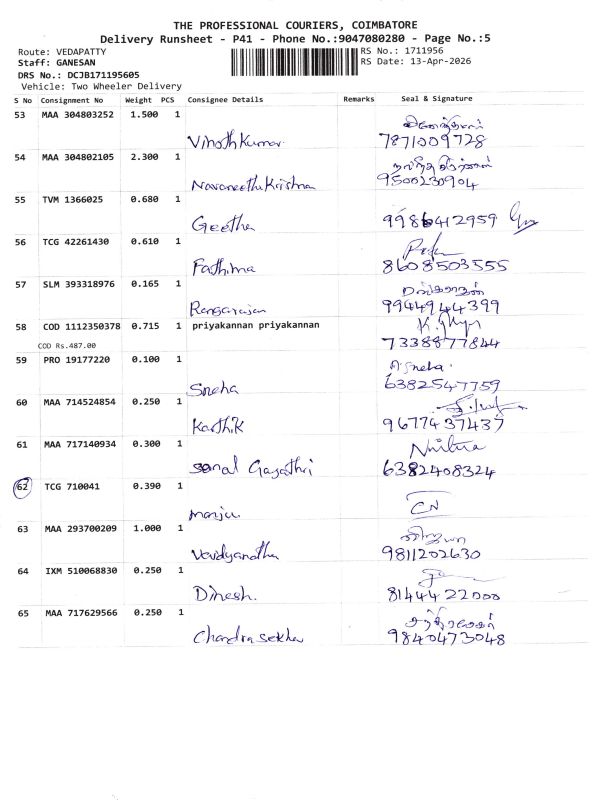 THE PROFESSIONAL COURIERS, COIMBATORE
Delivery Runsheet - P41 - Phone No.:9047080280 - Page No.:5
Route: VEDAPATTY
RS No.: 1711956
Staff: GANESAN
RS Date: 13-Apr-2026
DRS No.: DCJB171195605
Vehicle: Two Wheeler Delivery
S No Consignment No Weight PCS Consignee Details Remarks Seal & Signature
53 MAA 304803252 1.500 1
Vinothkumar 7871009728
54 MAA 304802105 2.300 1
Navaneethakrishna 9500230904
55 TVM 1366025 0.680 1
Geetha 9986412959
56 TCG 42261430 0.610 1
Fathima 8608503555
57 SLM 393318976 0.165 1
Rangarajan 9944944399
58 COD 1112350378 0.715 1 priyakannan priyakannan
COD Rs.487.00 7338877844
59 PRO 19177220 0.100 1 A. Sneha
Sneha 6382547759
60 MAA 714524854 0.250 1
Karthik 9677437437
61 MAA 717140934 0.300 1
sonal Gayathri 6382408324
62 TCG 710041 0.390 1
manju CN
63 MAA 293700209 1.000 1
Vaidyanatha 9811202630
64 IXM 510068830 0.250 1
Dinesh. 8144422000
65 MAA 717629566 0.250 1
Chandrasekhar 9840473048